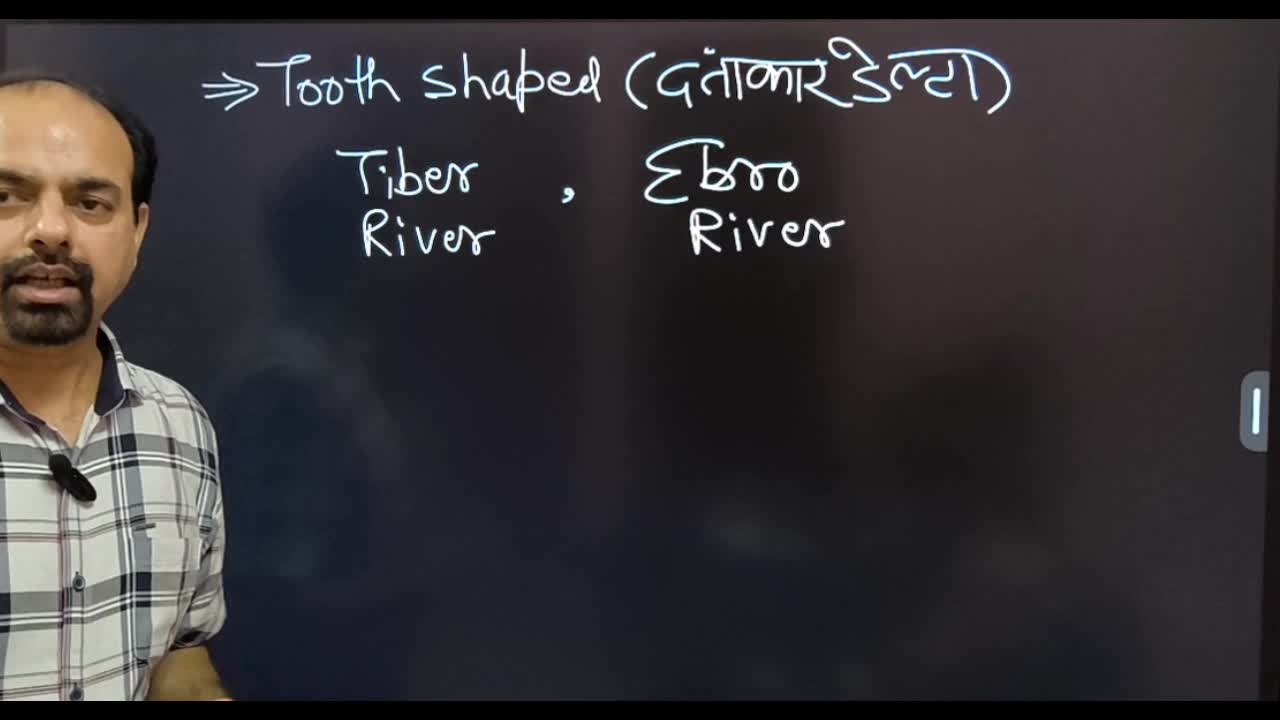 ⇒ Tooth shaped (दंताकार डेल्टा)
Tiber , Ebro
River River